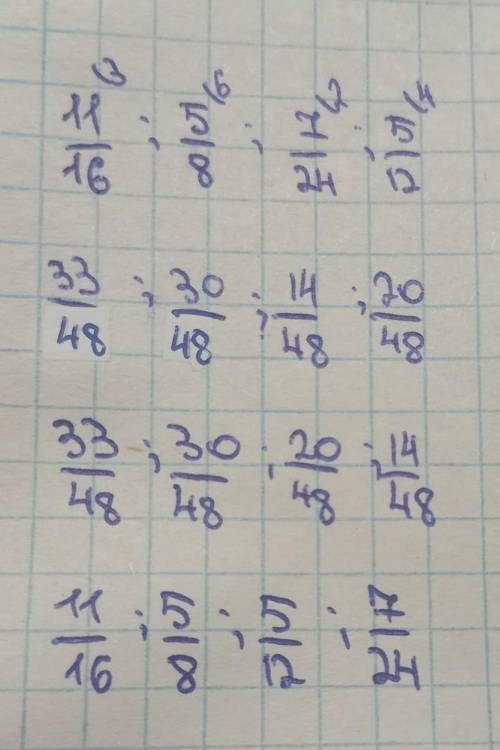 11/16 (3 ; 5/8 (6 ; 7/24 (2 ; 5/12 (4
33/48 ; 30/48 ; 14/48 ; 20/48
33/48 ; 30/48 ; 20/48 ; 14/48
11/16 ; 5/8 ; 5/12 ; 7/24